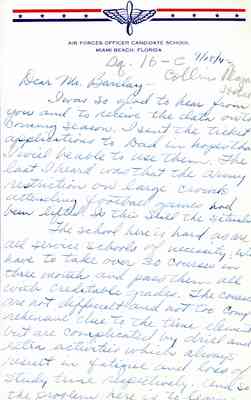 AIR FORCES OFFICER CANDIDATE SCHOOL
MIAMI BEACH, FLORIDA
Sq. 16-C
Dear Mr. Barclay
I was so glad to hear from
you and to receive the data on the
coming season. I sent the ticket
applications to Dad in hopes that
I will be able to use them. The
last I heard was that the army
restriction on large crowds
attending football games had
been lifted. Is this still the situation
The school here is hard as are
all service schools of necessity. We
have to take over 30 courses in
three months and pass them all
with creditable grades. The courses
are not difficult and not too comp-
rehensive due to the time element
but are complicated by drill and
extra activities which always
result in fatigue and loss of
study time respectively. And so
the problem here is to learn